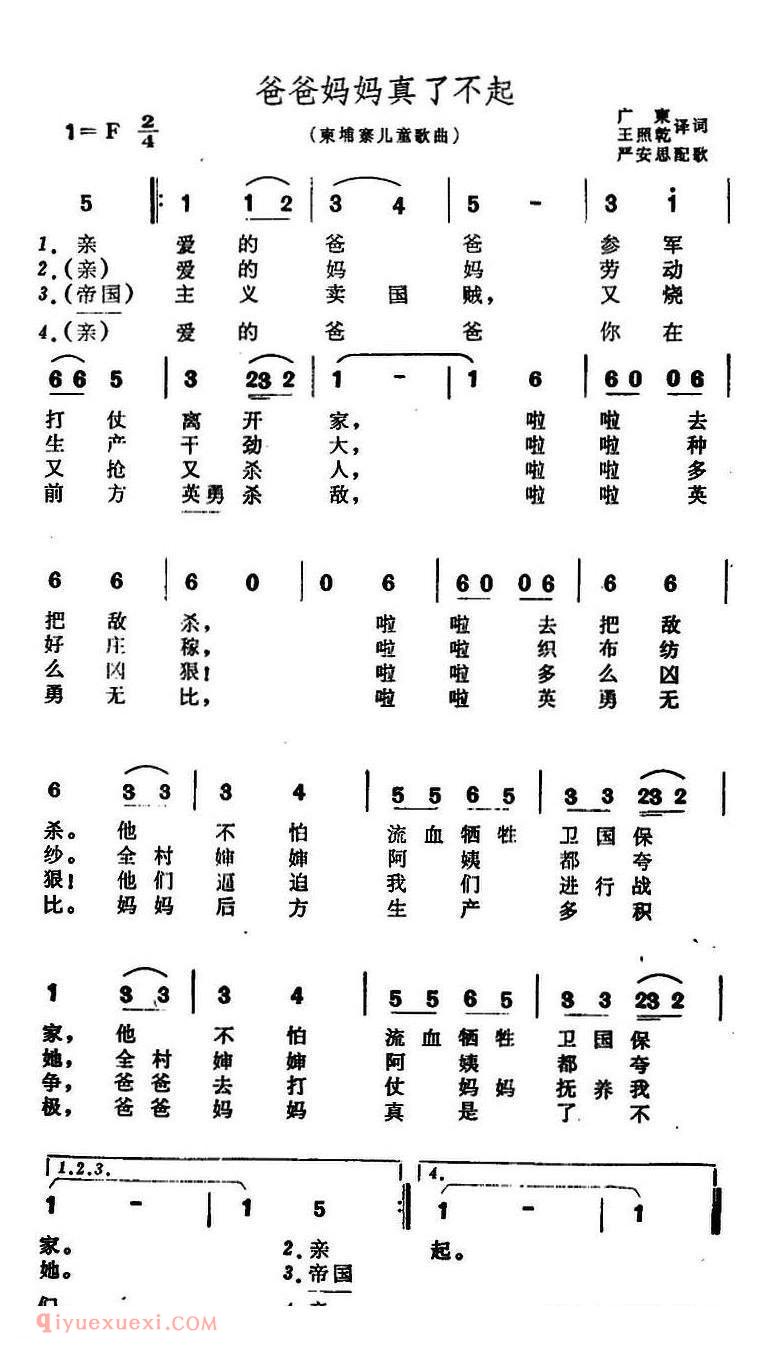 爸爸妈妈真了不起
1=F 2/4
(柬埔寨儿童歌曲)
广柬
王照乾 译词
严安思配歌
5 ‖: 1 1 2 | 3 4 | 5 - | 3 i |
1.亲 爱的 爸 爸 参 军
2.(亲) 爱的 妈 妈 劳 动
3.(帝国) 主义 卖国 贼, 又 烧
4.(亲) 爱的 爸 爸 你 在
6 6 5 | 3 23 2 | 1 - | 1 6 | 6 0 0 6 |
打 仗 离 开 家, 啦 啦 去
生 产 干 劲 大, 啦 啦 种
又 抢 又 杀 人, 啦 啦 多
前 方 英勇杀 敌, 啦 啦 英
6 6 | 6 0 | 0 6 | 6 0 0 6 | 6 6 |
把 敌 杀, 啦 啦 去 把 敌
好 庄 稼, 啦 啦 织 布 纺
么 凶 狠! 啦 啦 多 么 凶
勇 无 比, 啦 啦 英 勇 无
6 3 3 | 3 4 | 5 5 6 5 | 3 3 23 2 |
杀。他 不 怕 流血牺牲 卫国保
纱。全村 婶 婶 阿 姨 都 夸
狠! 他们 逼 迫 我 们 进行战
比。妈妈 后 方 生 产 多 积
1 3 3 | 3 4 | 5 5 6 5 | 3 3 23 2 |
家, 他 不 怕 流血牺牲 卫国保
她, 全村 婶 婶 阿 姨 都 夸
争, 爸爸 去 打 仗 妈妈 抚养我
极, 爸爸 妈 妈 真 是 了 不
1.2.3. 4.
1 - | 1 5 :‖ 1 - | 1 ‖
家。 2.亲 起。
她。 3.帝国
们
qiyuexuexi.com